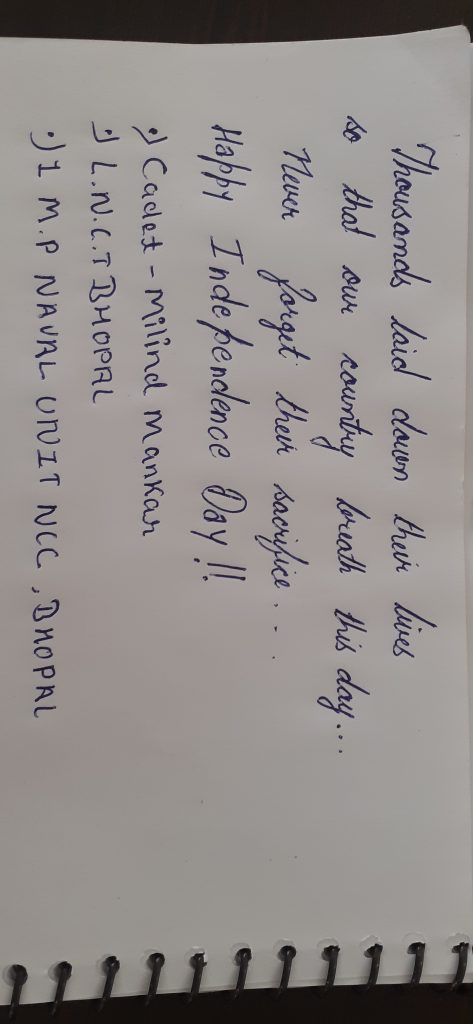 Thousands laid down their lives
so that our country breath this day...
Never forget their sacrifice....
Happy Independence Day!!
:) Cadet - Milind Mankar
:) L.N.C.T BHOPAL
:) 1 M.P NAVAL UNIT NCC, BHOPAL